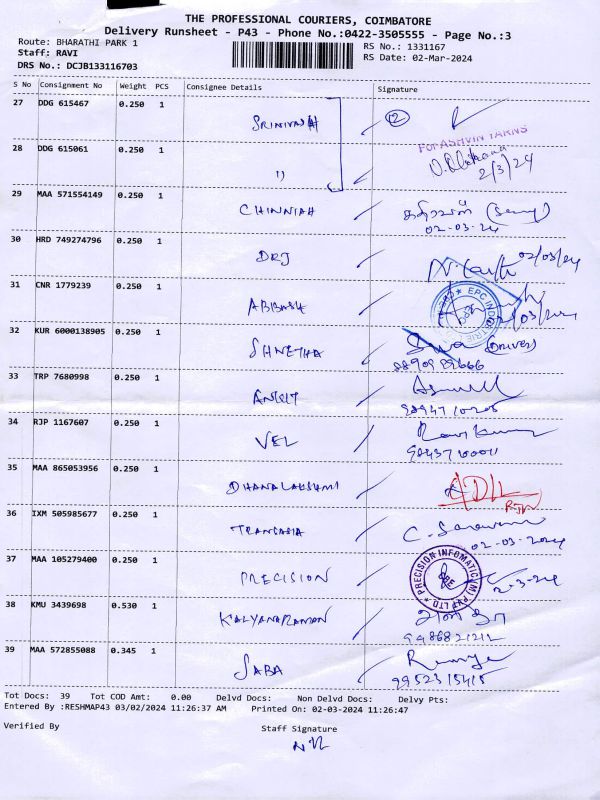 THE PROFESSIONAL COURIERS, COIMBATORE
Delivery Runsheet - P43 - Phone No.:0422-3505555 - Page No.:3
Route: BHARATHI PARK 1 RS No.: 1331167
Staff: RAVI RS Date: 02-Mar-2024
DRS No.: DCJB133116703
S No Consignment No Weight PCS Consignee Details Signature
27 DDG 615467 0.250 1 SRINIVASA 12
FOR ASHVIN YARNS
28 DDG 615061 0.250 1 11 2/3/24
29 MAA 571554149 0.250 1 CHINNIAH கதிரவன்
02-03-24
30 HRD 749274796 0.250 1 DRJ 02/03/24
31 CNR 1779239 0.250 1 ABBASH EPC INDUSTRIE
32 KUR 6000138905 0.250 1 SHNETHA Siva (Driver)
8890989666
33 TRP 7680998 0.250 1 ANKIT
34 RJP 1167607 0.250 1 VEL Ravi Kumar
35 MAA 865053956 0.250 1 DHANALAKSHMI
36 IXM 505985677 0.250 1 TRANSASIA C. Saravan
02-03-2024
37 MAA 105279400 0.250 1 PRECISION PRECISION INFOMATIC(M) PVT LTD 2-3-24
38 KMU 3439698 0.530 1 KALYANARAMAN
9486821212
39 MAA 572855088 0.345 1 SABA Ramya
9952315415
Tot Docs: 39 Tot COD Amt: 0.00 Delvd Docs: Non Delvd Docs: Delvy Pts:
Entered By :RESHMAP43 03/02/2024 11:26:37 AM Printed On: 02-03-2024 11:26:47
Verified By Staff Signature